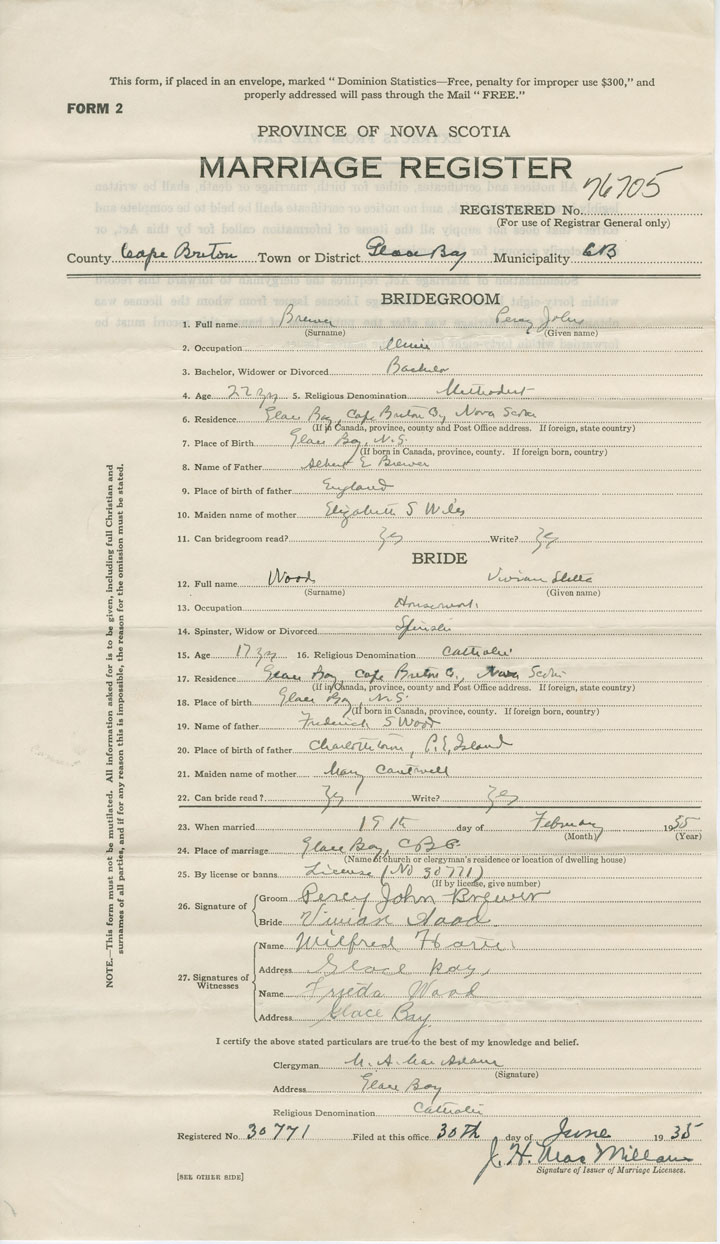 This form, if placed in an envelope, marked " Dominion Statistics—Free, penalty for improper use $300," and
properly addressed will pass through the Mail " FREE."
FORM 2
PROVINCE OF NOVA SCOTIA
MARRIAGE REGISTER
76705
REGISTERED No.
(For use of Registrar General only)
County Cape Breton Town or District Glace Bay Municipality CB
BRIDEGROOM
1. Full name Brewer Percy John
(Surname) (Given name)
2. Occupation Miner
3. Bachelor, Widower or Divorced Bachelor
4. Age 22 yrs 5. Religious Denomination Methodist
6. Residence Glace Bay, Cape Breton Co, Nova Scotia
(If in Canada, province, county and Post Office address. If foreign, state country)
7. Place of Birth Glace Bay, N.S.
(If born in Canada, province, county. If foreign born, country)
8. Name of Father Albert E Brewer
9. Place of birth of father England
10. Maiden name of mother Elizabeth S Wiles
11. Can bridegroom read? Yes Write? Yes
BRIDE
12. Full name Wood Vivian
(Surname) (Given name)
13. Occupation Housework
14. Spinster, Widow or Divorced Spinster
15. Age 17 yrs 16. Religious Denomination Catholic
17. Residence Glace Bay, Cape Breton C., Nova Scotia
(If in Canada, province, county and Post Office address. If foreign, state country)
18. Place of birth Glace Bay, N.S.
(If born in Canada, province, county. If foreign born, country)
19. Name of father Frederick S Wood
20. Place of birth of father Charlottetown, P.E. Island
21. Maiden name of mother Mary Cantwell
22. Can bride read? Yes Write? Yes
23. When married 19th day of February 1935
(Month) (Year)
24. Place of marriage Glace Bay, C.B.
(Name of church or clergyman's residence or location of dwelling house)
25. By license or banns License (No 30771)
(If by license, give number)
26. Signature of
Groom Percy John Brewer
Bride Vivian Wood
27. Signatures of Witnesses
Name Wilfred
Address Glace Bay,
Name Frieda Wood
Address Glace Bay
I certify the above stated particulars are true to the best of my knowledge and belief.
Clergyman M. A. MacAdam
(Signature)
Address Glace Bay
Religious Denomination Catholic
Registered No. 30771 Filed at this office 30th day of June 1935
J. H. MacMillan
Signature of Issuer of Marriage Licenses.
[SEE OTHER SIDE]
NOTE.—This form must not be mutilated. All information asked for is to be given, including full Christian and
surnames of all parties, and if for any reason this is impossible, the reason for the omission must be stated.